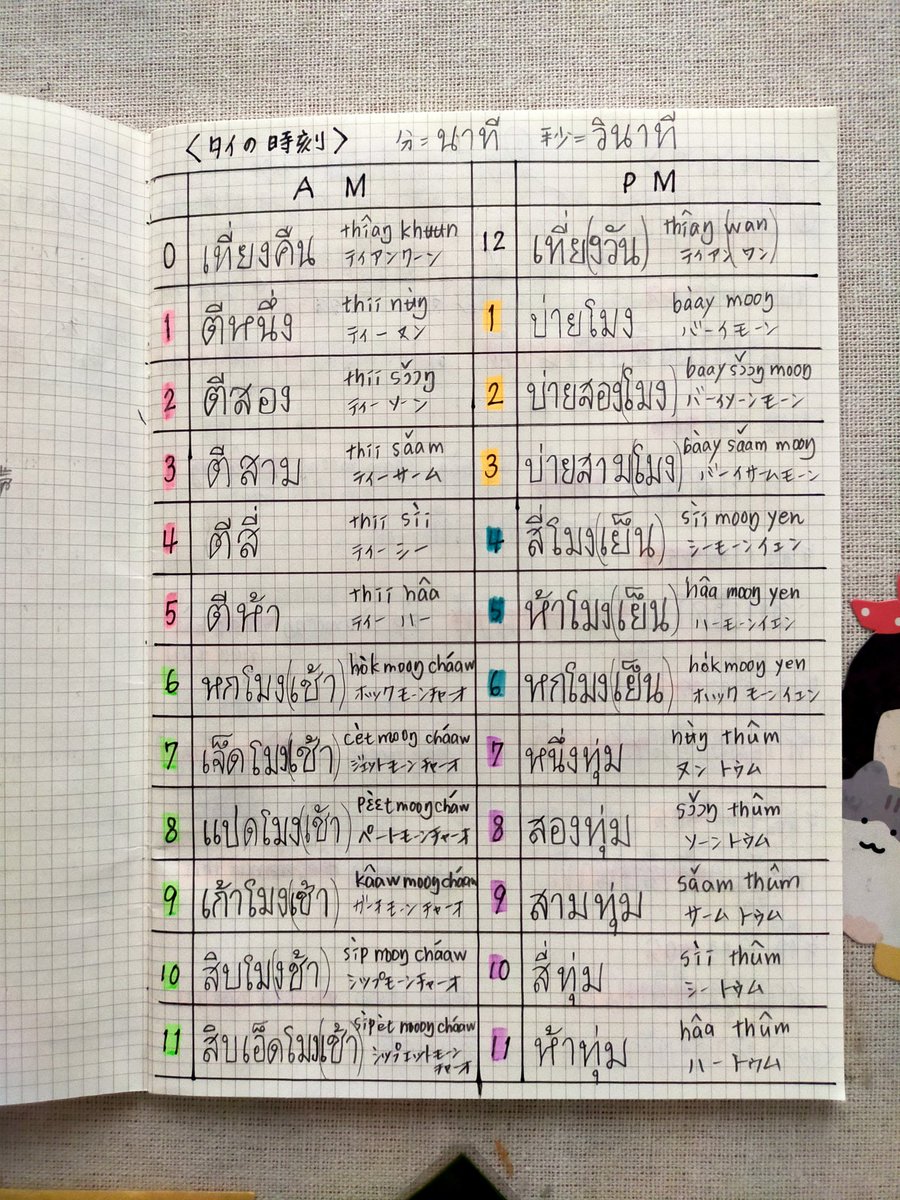 〈タイの時刻〉 分=นาที 秒=วินาที
AM PM
0 เที่ยงคืน thîaŋ khʉʉn 12 เที่ยง(วัน) thîaŋ (wan)
ティアンクーン ティアン(ワン)
1 ตีหนึ่ง thii nʉ̀ŋ 1 บ่ายโมง bàay mooŋ
ティーヌン バーイモーン
2 ตีสอง thii sɔ̌ɔŋ 2 บ่ายสอง(โมง) baay sɔ̌ɔŋ mooŋ
ティーソーン バーイソーンモーン
3 ตีสาม thii sǎam 3 บ่ายสาม(โมง) bàay sǎam mooŋ
ティーサーム バーイサームモーン
4 ตีสี่ thii sìi 4 สี่โมง(เย็น) sìi mooŋ yen
ティーシー シーモーンイェン
5 ตีห้า thii hâa 5 ห้าโมง(เย็น) hâa mooŋ yen
ティーハー ハーモーンイェン
6 หกโมง(เช้า) hòk mooŋ cháaw 6 หกโมง(เย็น) hòk mooŋ yen
ホックモーンチャーオ ホックモーンイェン
7 เจ็ดโมง(เช้า) cèt mooŋ cháaw 7 หนึ่งทุ่ม nʉ̀ŋ thûm
ジェットモーンチャーオ ヌン トゥム
8 แปดโมง(เช้า) pɛ̀ɛt mooŋ cháw 8 สองทุ่ม sɔ̌ɔŋ thûm
ペートモーンチャーオ ソーン トゥム
9 เก้าโมง(เช้า) kâaw mooŋ cháaw 9 สามทุ่ม sǎam thûm
ガーオモーンチャーオ サーム トゥム
10 สิบโมง(เช้า) sìp mooŋ cháaw 10 สี่ทุ่ม sìi thûm
シップモーンチャーオ シートゥム
11 สิบเอ็ดโมง(เช้า) sìpèt mooŋ cháaw 11 ห้าทุ่ม hâa thûm
シップエットモーン ハートゥム
チャーオ